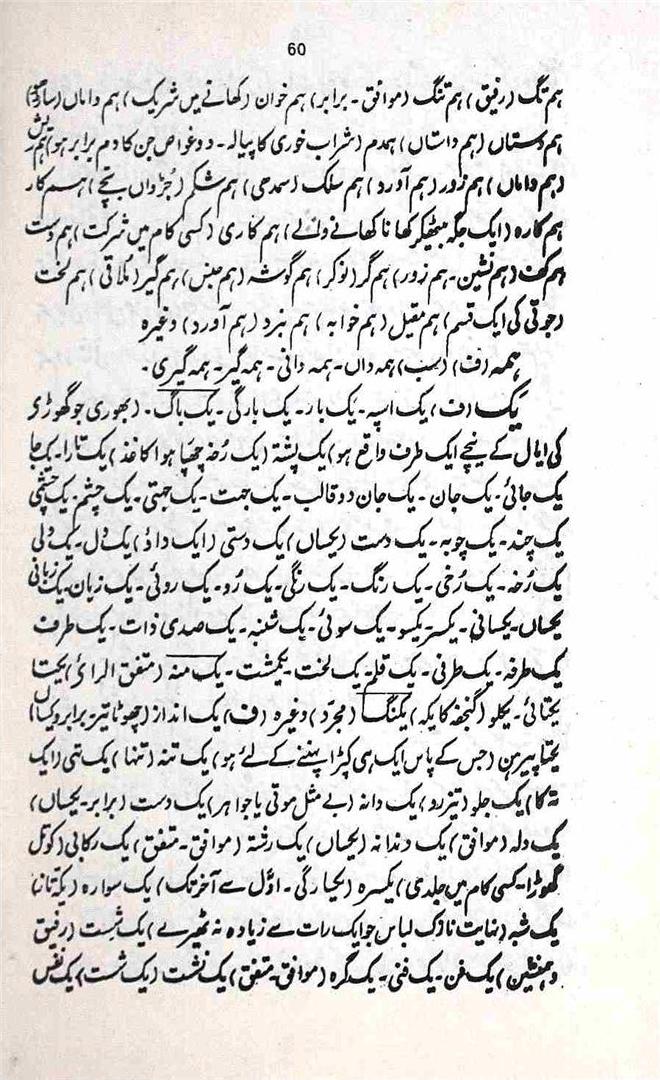 60
ہم تگ (رفیق) ہم تنگ (موافق ۔ برابر) ہم خوان (کھانے میں شریک) ہم داماں (ساڑھو)
ہم دستاں (ہم داتاں) ہمدم (شراب خوری کا پیالہ ۔ دو غواص جن کا دم برابر ہو) ہم ریش
(ہم داماں) ہم زور (ہم آورد) ہم سلک (سمدھی) ہم شکم (جڑواں بچے) ہم کار
ہم کارہ (ایک جگہ بیٹھکر کھانا کھانے والے) ہم کاری (کسی کام میں شرکت) ہم دست
ہم کف (ہم نشین ۔ ہم زور) ہم گر (نوکر) ہم گوشہ (ہم جنس) ہم گیر (ملاقی) ہم لخت
(جوتی کی ایک قسم) ہم مقیل (ہم خوابہ) ہم نبرد (ہم آورد) وغیرہ
ہمہ (ف) (سب) ہمہ داں ۔ ہمہ دانی ۔ ہمہ گیر ۔ ہمہ گیری ۔
یک (ف) یک اسپہ ۔ یک بار ۔ یک بارگی ۔ یک باگ ۔ (بھوری جو گھوڑی
کی ایال کے نیچے ایک طرف واقع ہو) یک پشتہ (یک رُخہ چھپا ہوا کاغذ) یک تارا ۔ یک جا
یک جائی ۔ یک جان ۔ یک جان دو قالب ۔ یک جہت ۔ یک جہتی ۔ یک چشم ۔ یک چشمی
یک چند ۔ یک چوبہ ۔ یک دست (یکساں) یک دستی (ایک داؤ) یک دل ۔ یک دلی
یک رُخہ ۔ یک رُخی ۔ یک رنگ ۔ یک رنگی ۔ یک رُو ۔ یک روئی ۔ یک زبان ۔ یک زبانی
یکساں ۔ یکسانی ۔ یکسر ۔ یکسو ۔ یک سوئی ۔ یک شنبہ ۔ یک صدی ذات ۔ یک طرف
یک طرفہ ۔ یک طرفی ۔ یک قلم ۔ یک لخت ۔ یکمشت ۔ یک منہ (متفق الرائ) یکتا
یکتائی ۔ یکلو (گنجفہ کا یکہ) یکنگ (مجرّد) وغیرہ (ف) یک انداز (چھوٹا تیر ۔ برابر و یکساں)
یکتا پیرہن (جس کے پاس ایک ہی کپڑا پہننے کے لئے ہو) یک تنہ (تنہا) یک تہی (ایک
تہ کا) یک جلو (تیز رو) یک دانہ (بے مثل موتی یا جواہر) یک دست (برابر ۔ یکساں)
یک دلہ (موافق) یک دندانہ (یکساں) یک رشتہ (موافق ۔ متفق) یک رکابی (کوتل
گھوڑا ۔ کسی کام میں جلدی) یکسرہ (یکبارگی ۔ اوّل سے آخر تک) یک سوارہ (یکہ تاز)
یک شبہ (نہایت نازک لباس جو ایک رات سے زیادہ نہ ٹھیرے) یک شست (رفیق
و ہمنشین) یک فن ۔ یک فنی ۔ یک گرہ (موافق ۔ متفق) یک نشست (یک شست) یک نفس